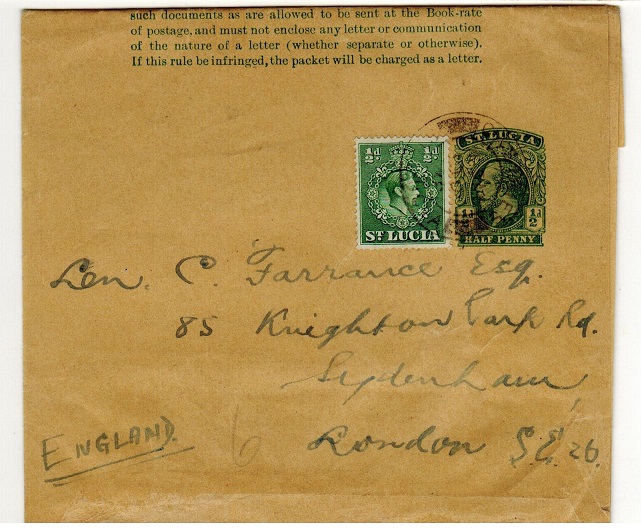 such documents as are allowed to be sent at the Book-rate
of postage, and must not enclose any letter or communication
of the nature of a letter (whether separate or otherwise).
If this rule be infringed, the packet will be charged as a letter.
½d ½d
ST LUCIA
ST. LUCIA
½d ½d
HALF PENNY
Len. C. Farrance Esq.
85 Knighton Park Rd.
Sydenham,
London S.E. 26.
ENGLAND.
6